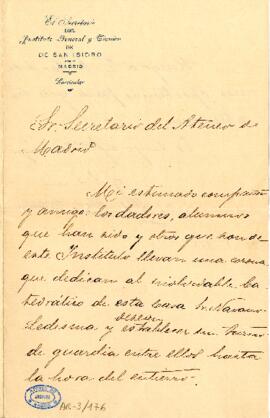 El Secretario
DEL
Instituto General y Técnico
DE
DE SAN ISIDRO
MADRID
Particular
Sr. Secretario del Ateneo de
Madrid
Mi estimado compañero
y amigo: los dadores, alumnos
que han sido y otros que son de
este Instituto llevan una corona
que dedican al inolvidable Ca-
tedrático de esta casa Sr. Navarro
Ledesma y desean establecer un turno
de guardia entre ellos hasta
la hora del entierro.
AR-3/176